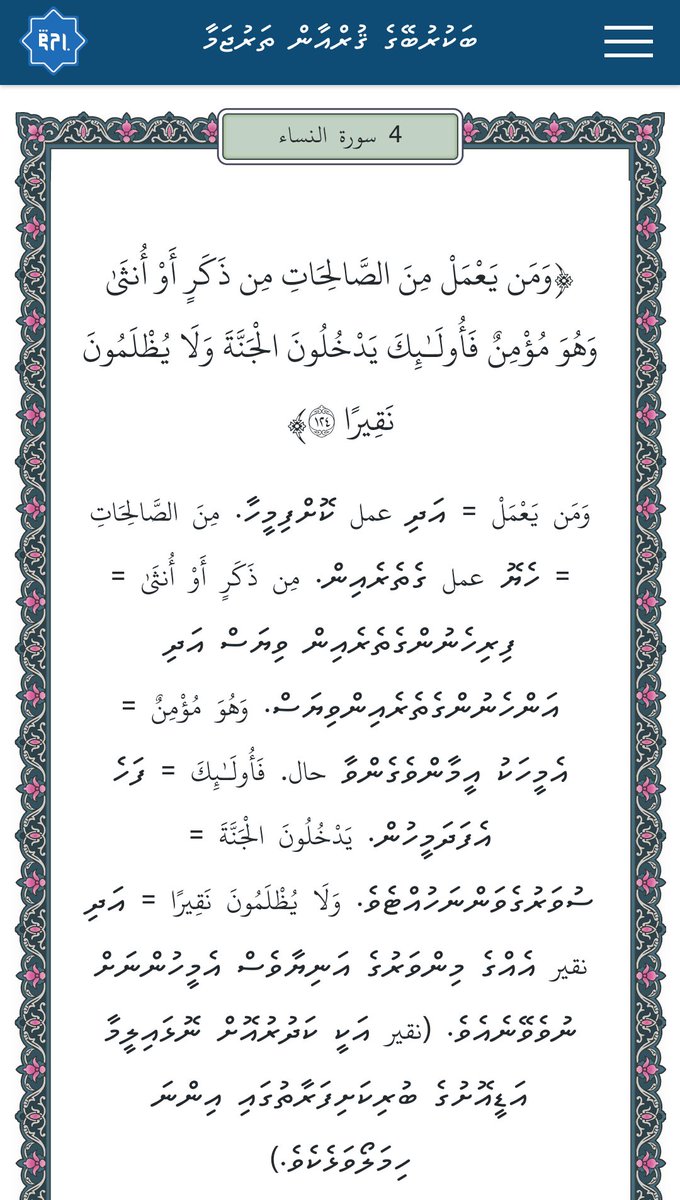 ބަކުރުބޭގެ ޤުރްއާން ތަރުޖަމާ
4 سورة النساء
﴿وَمَن يَعْمَلْ مِنَ الصَّالِحَاتِ مِن ذَكَرٍ أَوْ أُنثَىٰ
وَهُوَ مُؤْمِنٌ فَأُولَـٰئِكَ يَدْخُلُونَ الْجَنَّةَ وَلَا يُظْلَمُونَ
نَقِيرًا ١٢٤﴾
وَمَن يَعْمَلْ = އަދި عمل ކޮށްފިމީހާ. مِنَ الصَّالِحَاتِ
= ހެޔޮ عمل ގެތެރެއިން. مِن ذَكَرٍ أَوْ أُنثَىٰ =
ފިރިހެނުންގެތެރެއިން ވިޔަސް އަދި
އަންހެނުންގެތެރެއިންވިޔަސް. وَهُوَ مُؤْمِنٌ =
އެމީހަކު އީމާންވެގެންވާ حال. فَأُولَـٰئِكَ = ފަހެ
އެފަދަމީހުން. يَدْخُلُونَ الْجَنَّةَ =
ސުވަރުގެވަންނަހުއްޓެވެ. وَلَا يُظْلَمُونَ نَقِيرًا = އަދި
نقير އެއްގެ މިންވަރުގެ އަނިޔާވެސް އެމީހުންނަށް
ނުވެވޭނެއެވެ. (نقير އަކީ ކަދުރުއޮށް ނޮޅައިލީމާ
އަޑީއޮށުގެ ބުރިކަށިފަރާތުގައި އިންނަ
ހިމަލޯވަޅެކެވެ.)